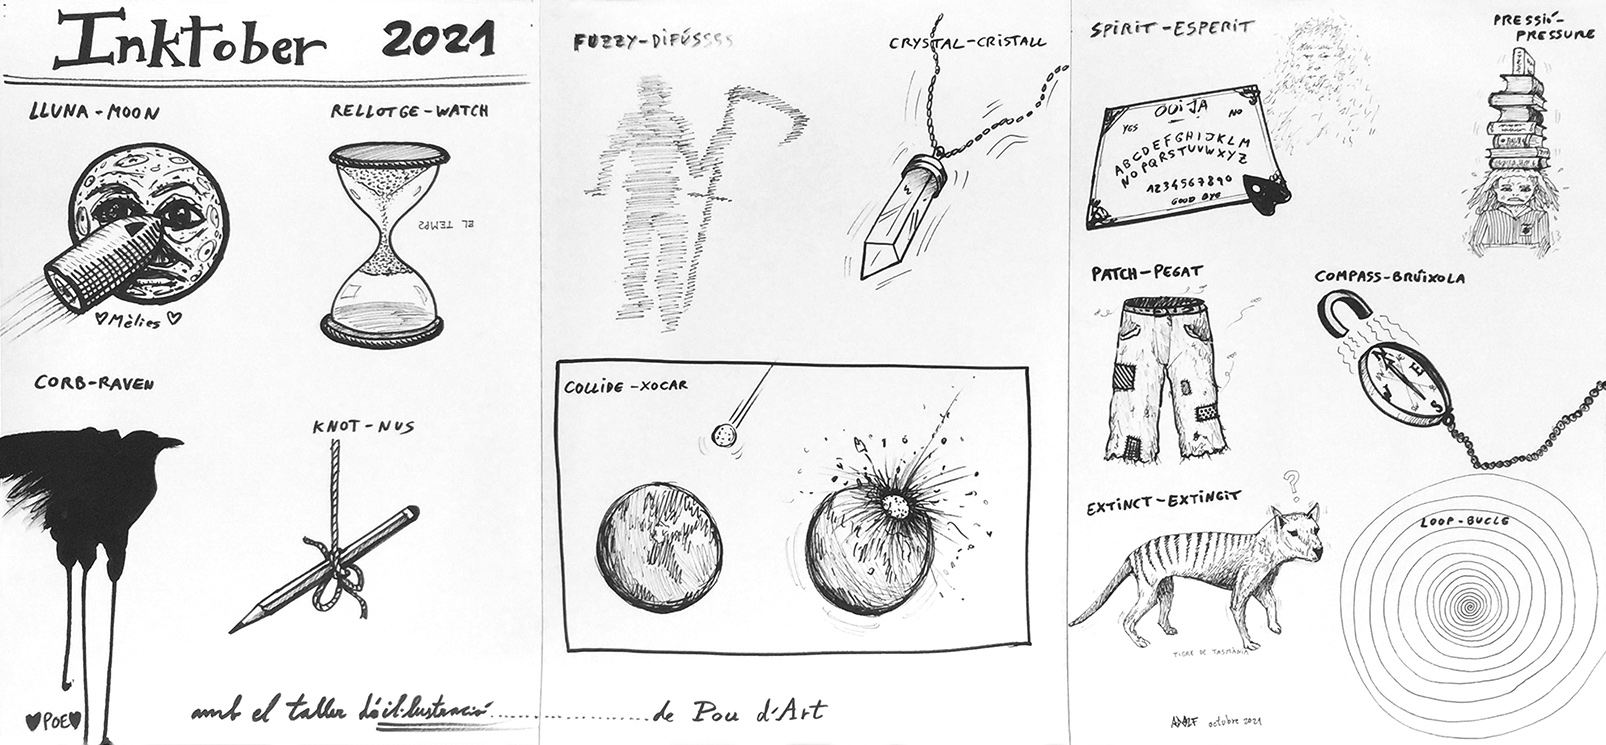 Inktober 2021
LLUNA-MOON
RELLOTGE-WATCH
EL TEMPS
♡Mèlies♡
CORB-RAVEN
KNOT-NUS
♥POE♥
amb el taller d'il·lustració ................ de Pou d'Art
FUZZY-DIFÚSSSS
CRYSTAL-CRISTALL
COLLIDE-XOCAR
SPIRIT-ESPERIT
OUIJA
YES
NO
ABCDEFGHIJKLM
NOPQRSTUVWXYZ
1234567890
GOOD BYE
PRESSIÓ-
PRESSURE
PATCH-PEGAT
COMPASS-BRÚIXOLA
E
S
EXTINCT-EXTINGIT
?
TIGRE DE TASMÀNIA
LOOP-BUCLE
octubre 2021